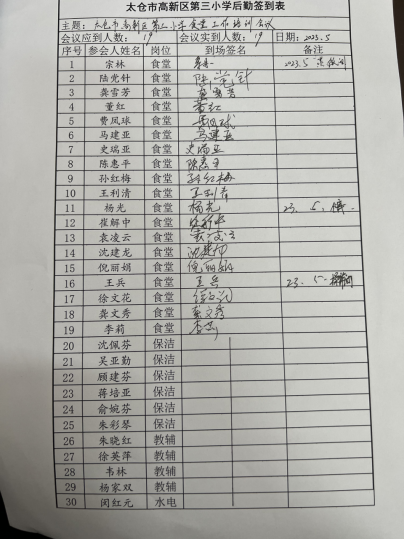 太仓市高新区第三小学后勤签到表
主题：太仓市高新区第三小学食堂工作培训会议
会议应到人数：19 会议实到人数：19 日期：2023.5
序号 参会人姓名 岗位 到场签名 备注
1 宗林 食堂 2023.5
2 陆党针 食堂 陆党针
3 龚雪芳 食堂 龚雪芳
4 董红 食堂 董红
5 费凤球 食堂 费凤球
6 马建亚 食堂 马建亚
7 史瑞亚 食堂 史瑞亚
8 陈惠平 食堂 陈惠平
9 孙红梅 食堂 孙红梅
10 王利清 食堂 王利清
11 杨光 食堂 杨光 23.5.
12 崔解中 食堂 崔解中
13 袁凌云 食堂 袁凌云
14 沈建龙 食堂
15 倪丽娟 食堂 倪丽娟
16 王兵 食堂 王兵 23.5.
17 徐文花 食堂 徐文花
18 龚文秀 食堂 龚文秀
19 李莉 食堂 李莉
20 沈佩芬 保洁
21 吴亚勤 保洁
22 顾建芬 保洁
23 蒋培亚 保洁
24 俞婉芬 保洁
25 朱彩琴 保洁
26 朱晓红 教辅
27 徐英萍 教辅
28 韦林 教辅
29 杨家双 教辅
30 闵红元 水电